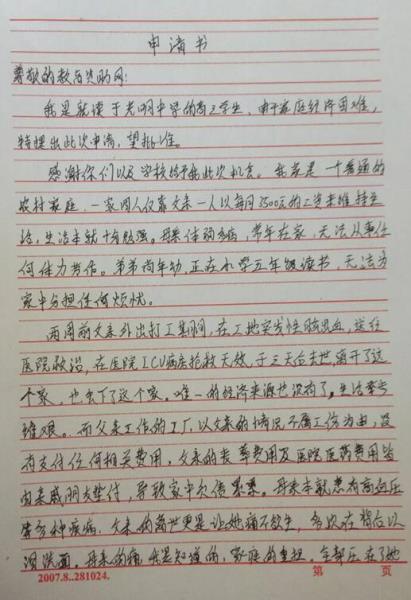 申请书
尊敬的教育资助网:
我是就读于光明中学的高三学生,由于家庭经济困难,
特提出此次申请,望批准。
感谢你们以及学校给予我此次机会。我家是一个普通的
农村家庭,一家四人仅靠父亲一人以每月3500元的工资来维持生
活,生活本就十分勉强。母亲体弱多病,常年在家,无法从事任
何体力劳作。弟弟尚年幼,正在小学五年级读书,无法为
家中分担任何烦忧。
两周前父亲外出打工期间,在工地突发性脑出血,送往
医院救治,在医院ICU病房抢救无效,于三天后去世,离开了这
个家,也丢下了这个家。唯一的经济来源也没有了,生活举步
维艰。而父亲工作的工厂,以父亲的情况不属工伤为由,没
有支付任何相关费用,父亲的丧葬费用及医院医药费用皆
由亲戚朋友垫付,导致家中欠债累累。母亲本就患有高血压
等多种疾病,父亲的离世更是让她痛不欲生,多次在背后以
泪洗面。母亲的痛,我是知道的,家庭的重担,全部压在了她
2007.8..281024.
第 页